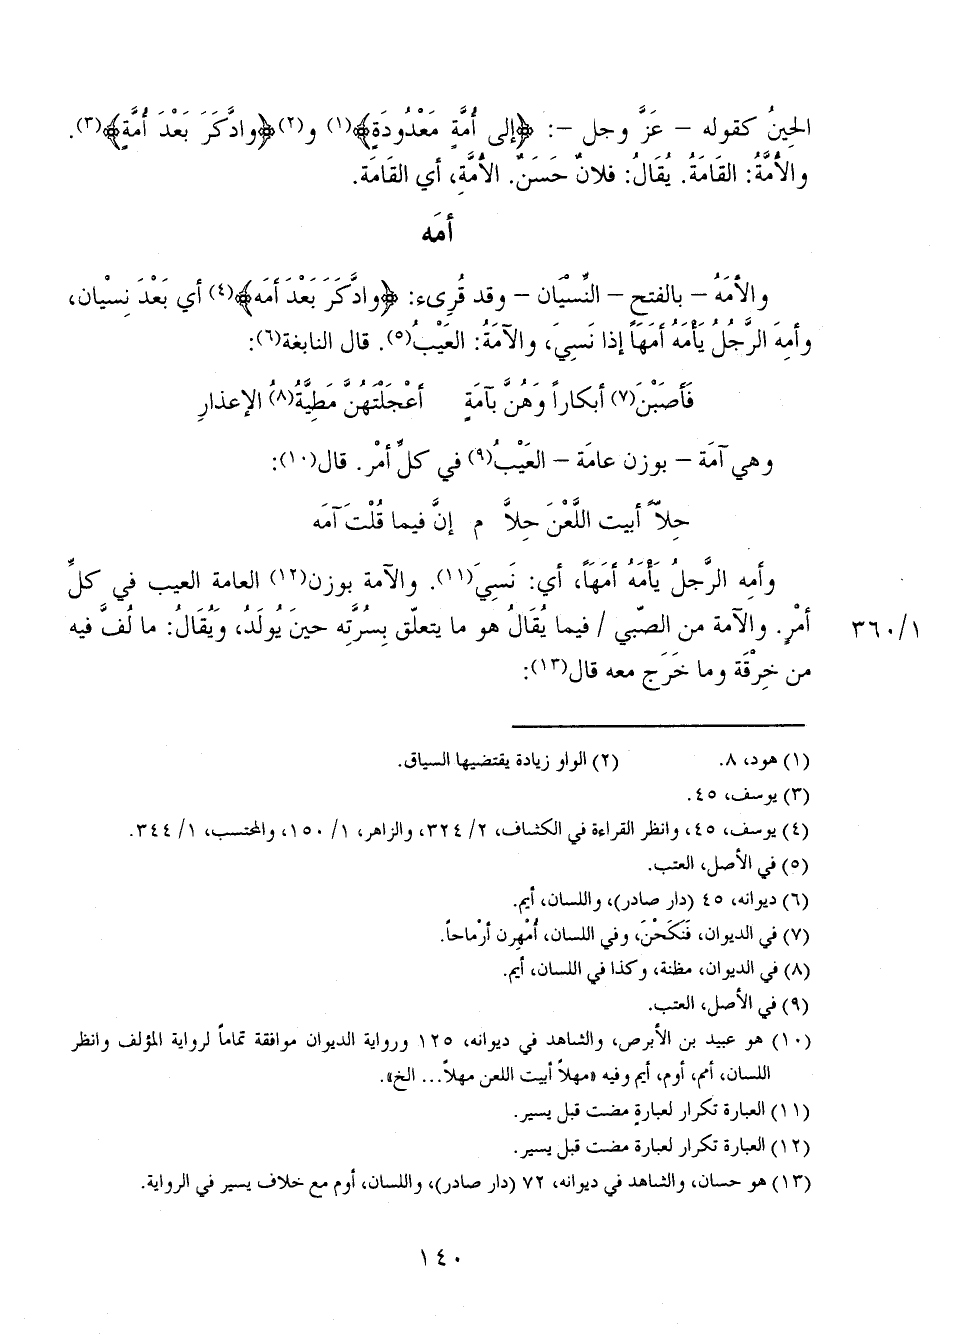 الحِينُ كقوله – عَزَّ وجل –: ﴿إلى أُمَّةٍ مَعْدُودَةٍ﴾(١) و(٢)﴿وادَّكَرَ بَعْدَ أُمَّةٍ﴾(٣).
والأُمَّةُ: القَامَةُ. يُقَالُ: فلانٌ حَسَنٌ. الأُمَّةِ، أي القَامَة.
أمَه
والأمَهُ – بالفتح – النِّسْيَان – وقد قُرِىء: ﴿وادَّكَرَ بَعْدَ أمَه﴾(٤) أي بَعْدَ نِسْيان،
وأمِهَ الرَّجُلُ يَأْمَهُ أمَهَاً إذا نَسِيَ، والآمَةُ: العَيْبُ(٥). قال النابغة(٦):
فَأَصَبْنَ(٧) أبكاراً وَهُنَّ بآمَةٍ أعْجَلْتَهُنَّ مَطِيَّةُ(٨) الإعذارِ
وهي آمَة – بوزن عامَة – العَيْبُ(٩) في كلِّ أمْر. قال(١٠):
حِلاًّ أبيت اللَّعْنَ حِلاًّ م إنَّ فيما قُلْتَ آمَه
وأمِه الرَّجلُ يَأْمَهُ أمَهَاً، أي: نَسِيَ(١١). والآمة بوزن(١٢) العامة العيب في كلِّ
أمْرٍ. والآمة من الصّبي / فيما يُقَالُ هو ما يتعلّق بِسُرَّتِه حينَ يُولَدُ، وَيُقَالُ: ما لُفَّ فيه
٣٦٠/١
من خِرْقَة وما خَرَج معه قال(١٣):
(١) هود، ٨. (٢) الواو زيادة يقتضيها السياق.
(٣) يوسف، ٤٥.
(٤) يوسف، ٤٥، وانظر القراءة في الكشاف، ٢/ ٣٢٤، والزاهر، ١/ ١٥٠، والمحتسب، ١/ ٣٤٤.
(٥) في الأصل، العتب.
(٦) ديوانه، ٤٥ (دار صادر)، واللسان، أيم.
(٧) في الديوان، فَنَكَحْنَ، وفي اللسان، أُمْهِرن أرْماحاً.
(٨) في الديوان، مظنة، وكذا في اللسان، أيم.
(٩) في الأصل، العتب.
(١٠) هو عبيد بن الأبرص، والشاهد في ديوانه، ١٢٥ ورواية الديوان موافقة تماماً لرواية المؤلف وانظر
اللسان، أمم، أوم، أيم وفيه «مهلاً أبيت اللعن مهلاً... الخ».
(١١) العبارة تكرار لعبارةٍ مضت قبل يسير.
(١٢) العبارة تكرار لعبارة مضت قبل يسير.
(١٣) هو حسان، والشاهد في ديوانه، ٧٢ (دار صادر)، واللسان، أوم مع خلاف يسير في الرواية.
١٤٠